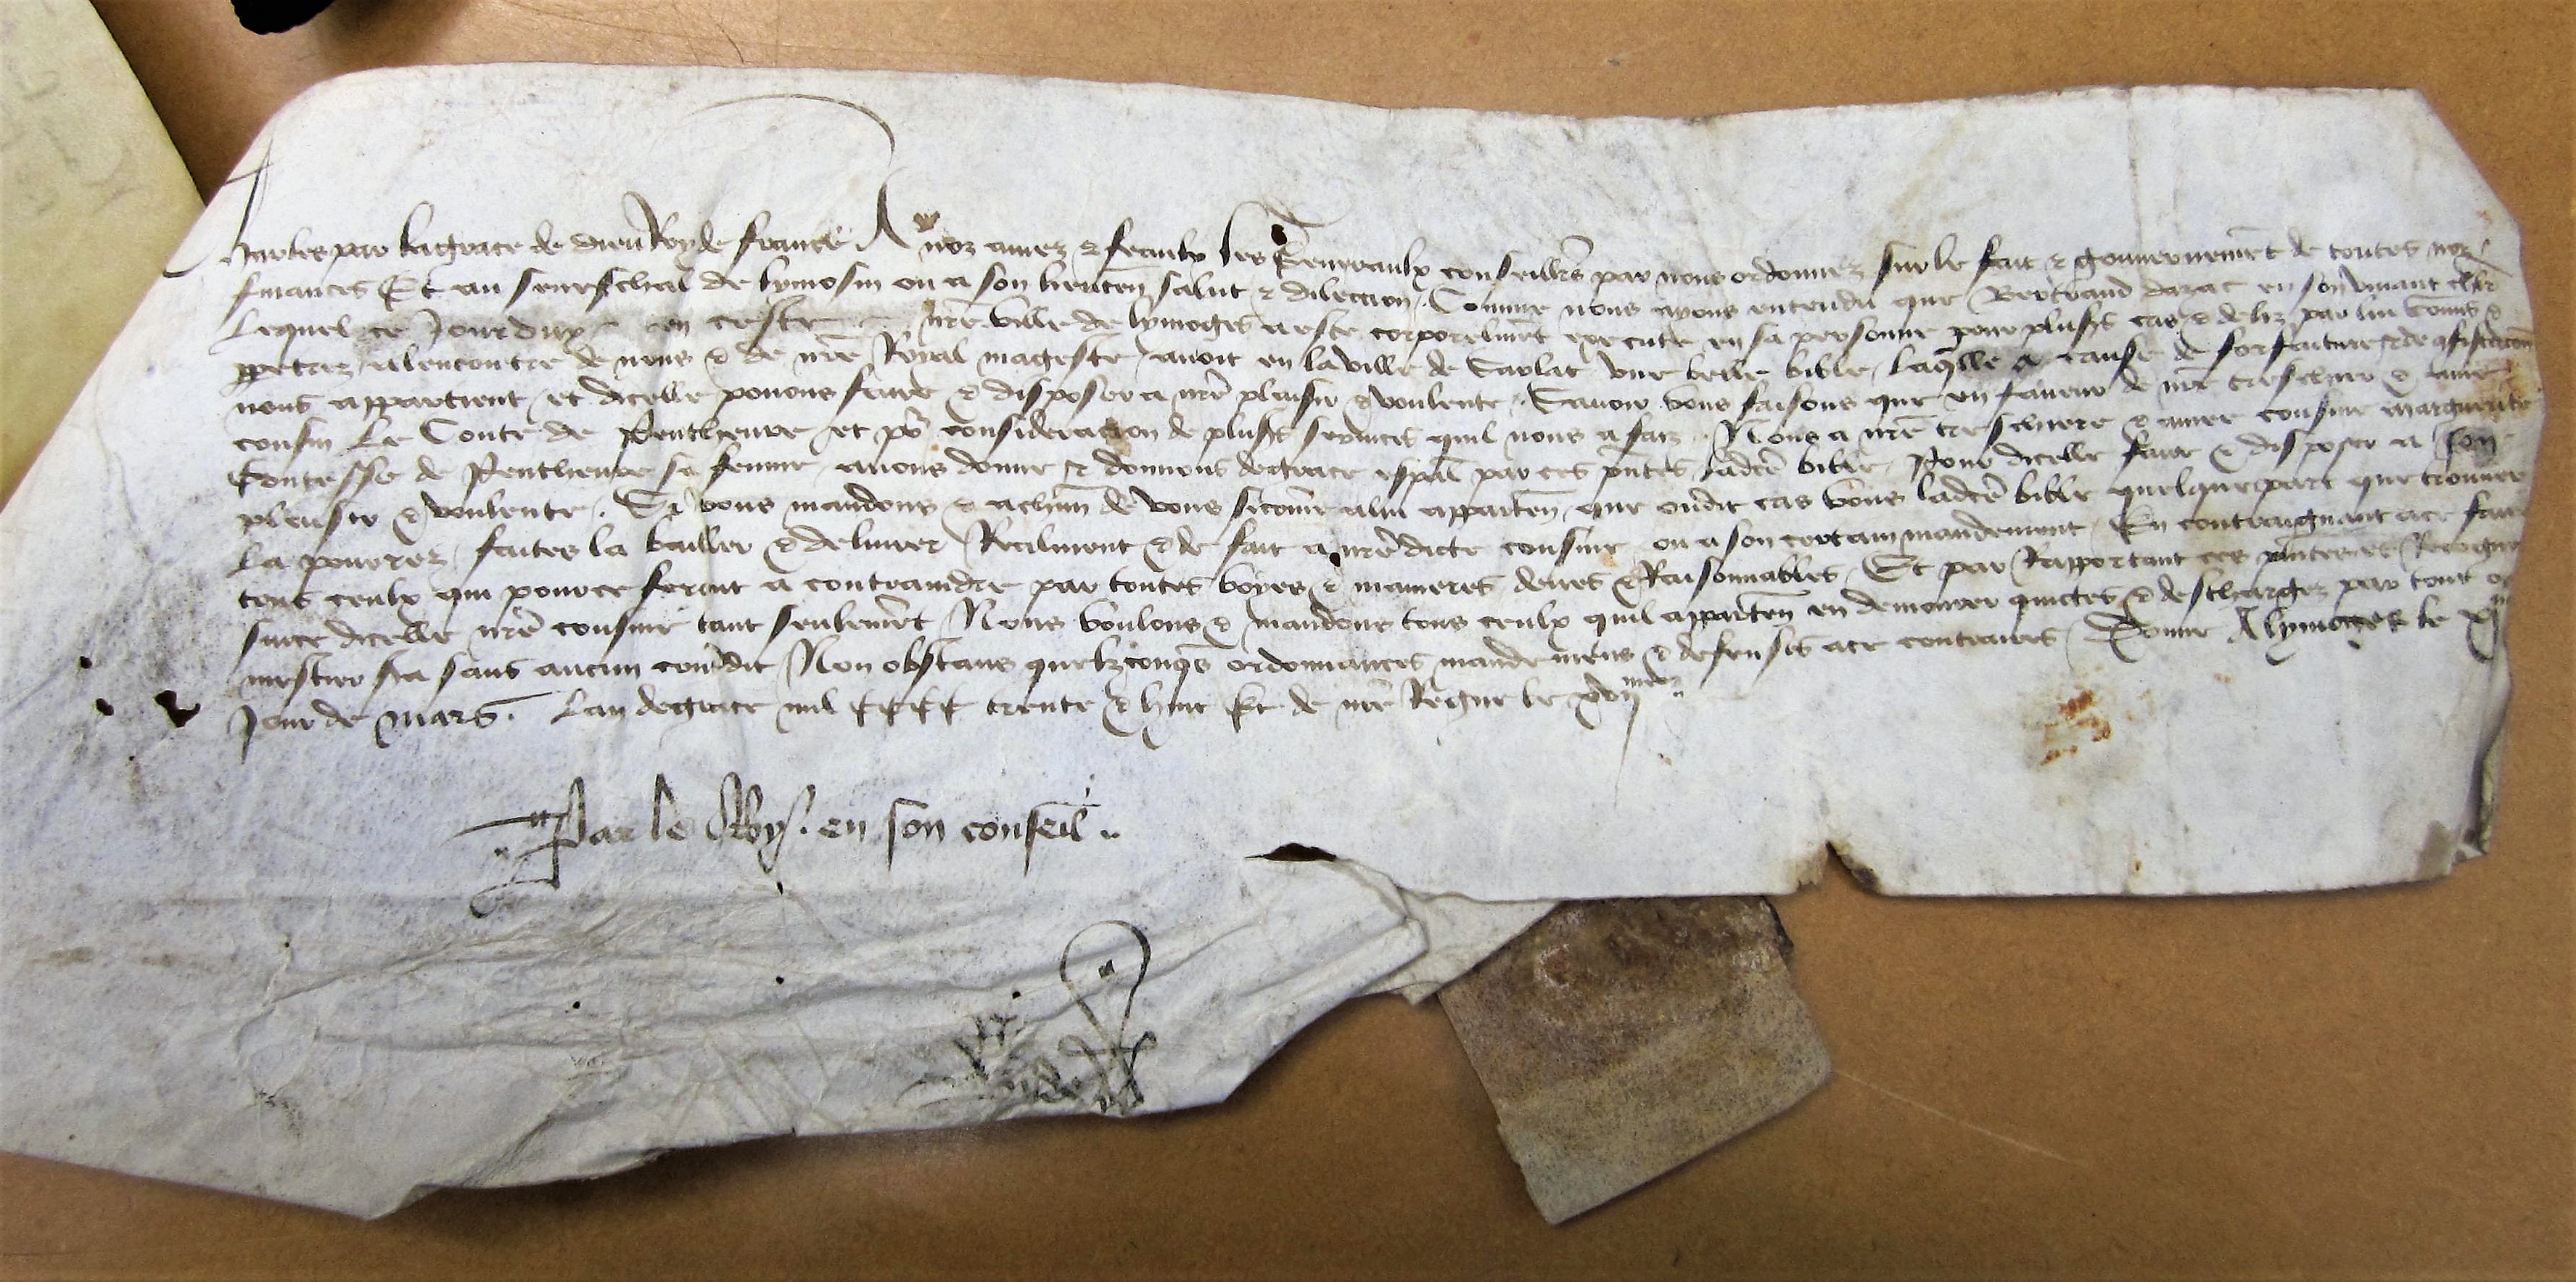 Charles par la grace de dieu Roy de france A noz amez & feaulx les Generaulx conseillers par nous ordonnez sur le fait & gouvernemēt de toutes noz
finances Et au seneschal de lymosin ou a son lieuten̄ salut & dilection. Comme nous ayons entendu que Bertrand dazat en son vivant chlr
Lequel ce Jourduy en ceste nrē ville de lymoges a este corporelmēt execute en sa personne pour plus̄rs cas & deliz par lui com̄is &
ppetrez alencontre de nous & de nrē Royal mageste avoit en la ville de Sarlat une belle bible, laq̄lle a cause de forfaiture & de cōfiscacion
nous appartient et dicelle povons faire & disposer a nrē plaisir & voulente. Savoir vous faisons que en faveur de nrē treschier & ame
cousin Le Conte de Penthevre et po consideracion de plus̄rs services quil nous a faiz. Nous a nrē treschiere & amee cousine marguerite
Contesse de Penthevre sa femme avons donne & donnons de grace esp̄al par ces p̄ntes ladc̄e bible, Pour dicelle faire & disposer a son
plaisir & voulente. Si vous mandons & a chūn de vous sicom̄e a lui apparten̄ que oudit cas vous ladc̄e bible quelque part que trouver
la pourrez, faites la bailler & delivrer Realment & de fait a nrē dicte cousine ou a son certain mandement En contraignant a ce faire
tous ceulx qui pour ce feront a contraindre par toutes voyes & manieres deues & Raisonnables Et par Rapportant ces p̄ntes et Recognois
sance dicelle nrē cousine tant seulemēt Nous voulons & mandons tous ceulx quil apparten̄ en demourer quictes & deschargez par tout ou
mestier sera sans aucun cont̄dit Non obstans quelzconq̄s ordonnances mandemens & defenses a ce contraires. Donne A lymoges le xj
Jour de mars. Lan de grace mil cccc trente & huit Et de nrē Regne le xvijme
Par le Roy. en son conseil.